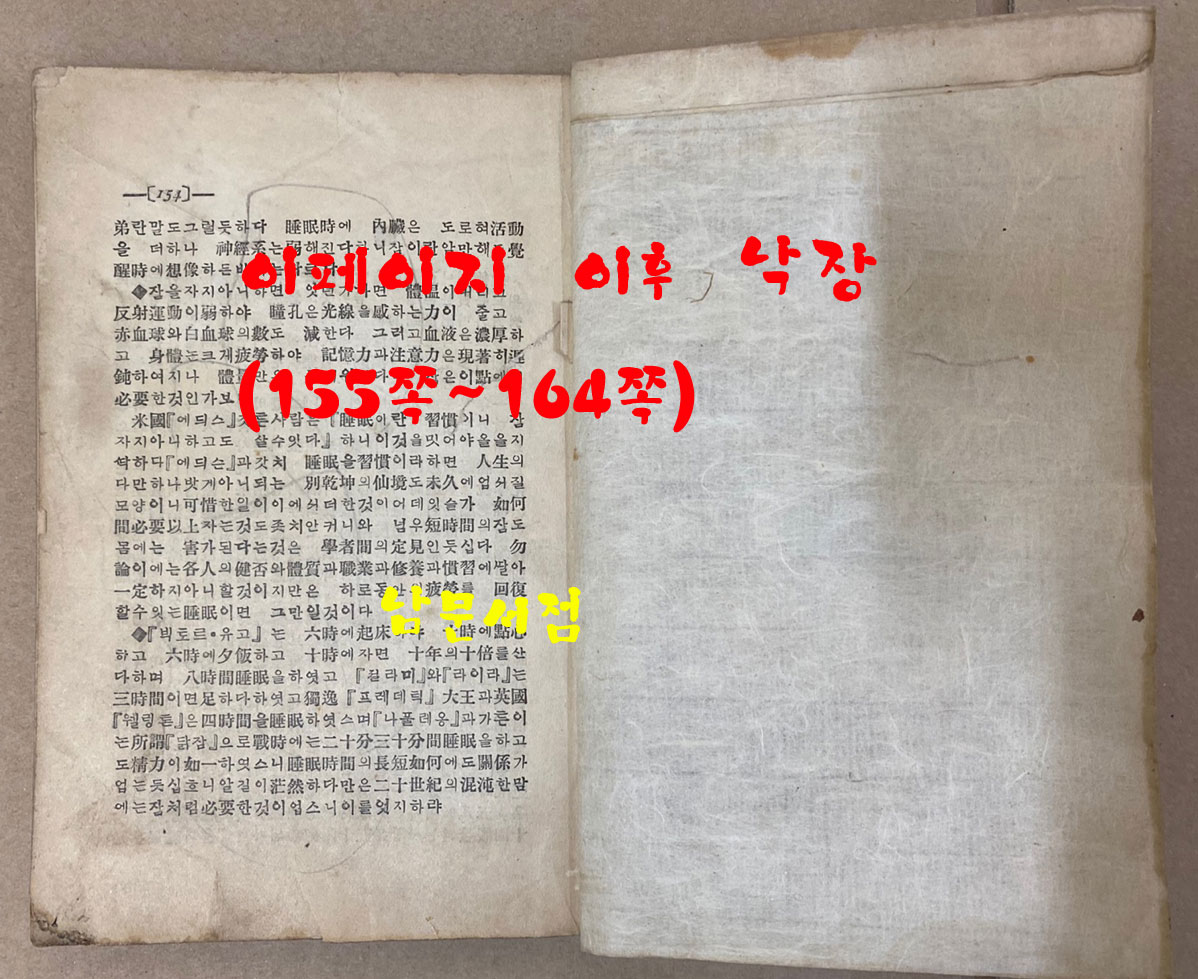 —[154]—
弟란말도그럴듯하다 睡眠時에 內臟은 도로혀活動
을 더하나 神經系는弱해진다하니잠이란암만해도覺
醒時에想像하든바
이페이지 이후 낙장
◆잠을자지아니하면 엇던가하면 體溫이내리고
反射運動이弱하야 瞳孔은光線을感하는力이 줄고
赤血球와白血球의數도 減한다 그러고血液은濃厚하
고 身體는크게疲勞하야 記憶力과注意力은現著히遲
鈍하여지나 體量만은
(155쪽~164쪽)
必要한것인가보
米國『에듸스 른사람은『睡眠이란 習慣이니 잠
자지아니하고도 살수잇다』하니이것을밋어야올을지
싹하다『에듸슨』과갓치 睡眠을習慣이라하면 人生의
다만하나밧게아니되는 別乾坤의仙境도未久에업서질
모양이니可惜한일이이에서더한것이어데잇슬가 如何
間必要以上자는것도좃치안커니와 넘우短時間의잠도
몸에는 害가된다는것은 學者間의定見인듯십다 勿
論이에는各人의健否와體質과職業과修養과慣習에딸아
一定하지아니할것이지만은 하로동안의疲勞를 回復
할수잇는睡眠이면 그만일것이다
남문서점
◆『빅토르·유고』는 六時에起床하야 十時에點心
하고 六時에夕飯하고 十時에자면 十年의十倍를산
다하며 八時間睡眠을하엿고 『킬라미』와『라이라』는
三時間이면足하다하엿고獨逸『프레데릭』大王과英國
『웰링톤』은四時間을睡眠하엿스며『나폴레옹』과가튼이
는所謂『닭잠』으로戰時에는二十分三十分間睡眠을하고
도精力이如一하엿스니睡眠時間의長短如何에도關係가
업는듯십흐니알길이茫然하다만은二十世紀의混沌한맘
에는잠처럼必要한것이업스니이를엇지하랴